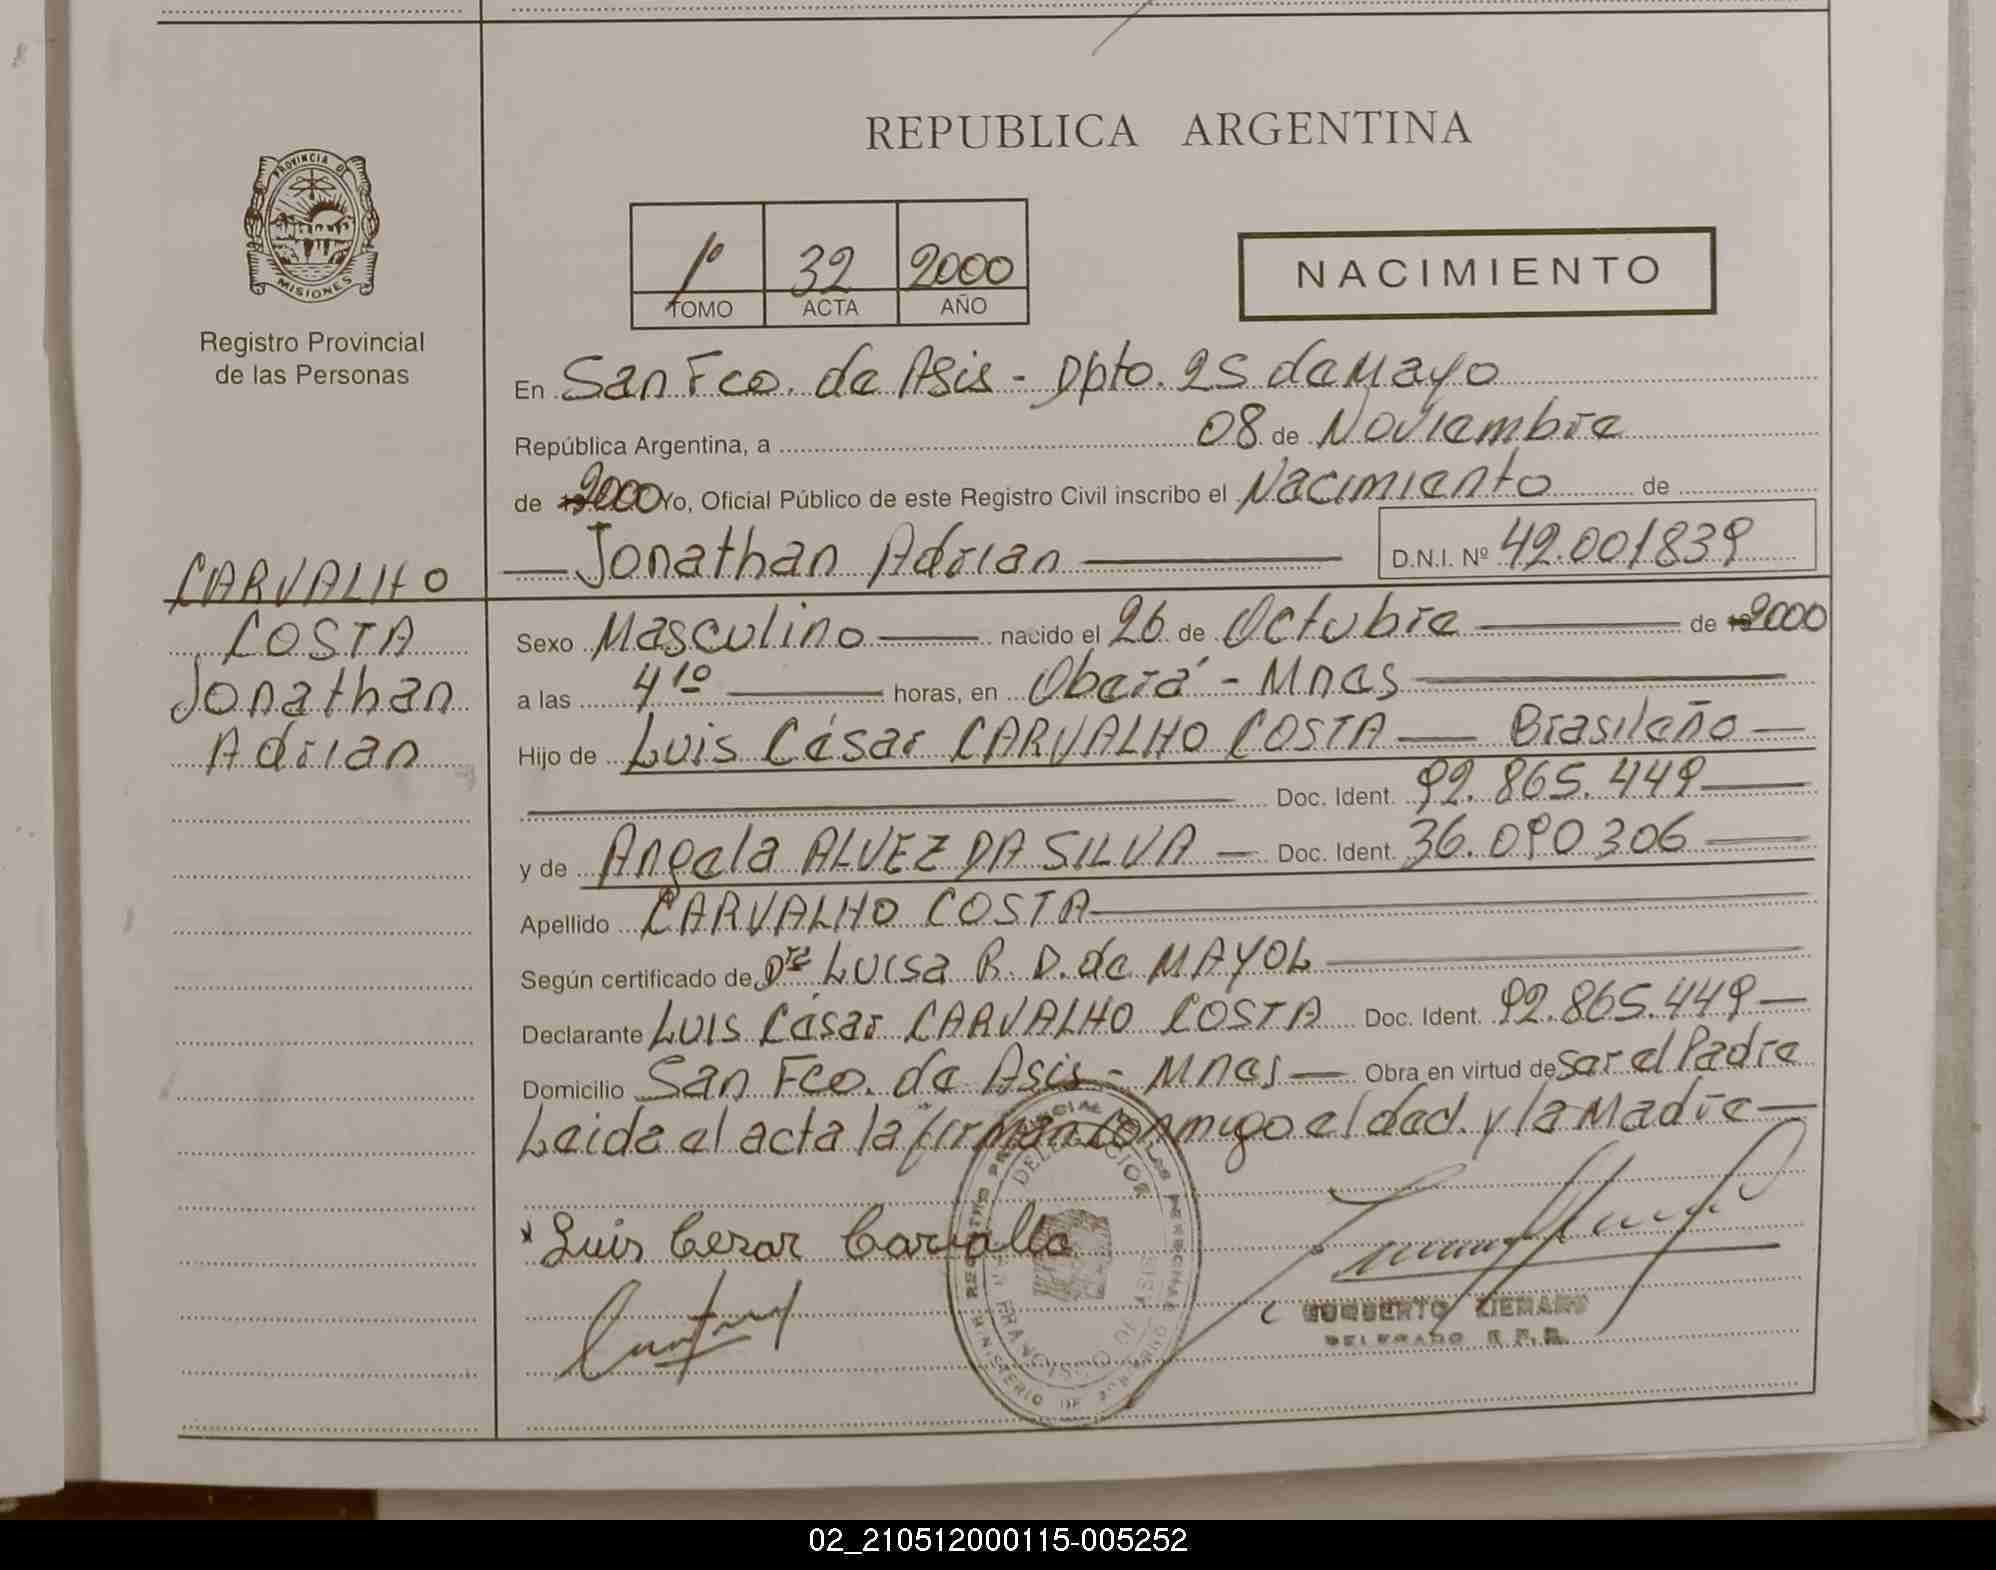 REPUBLICA ARGENTINA
PROVINCIA DE
MISIONES
Registro Provincial
de las Personas
1º 32 2000
TOMO ACTA AÑO
NACIMIENTO
En San Fco. de Asis - Dpto. 25 de Mayo
República Argentina, a 08 de Noviembre
de 2000 Yo, Oficial Público de este Registro Civil inscribo el Nacimiento de
Jonathan Adrian D.N.I. Nº 42.001839
CARVALHO
COSTA
Jonathan
Adrian
Sexo Masculino nacido el 26 de Octubre de 2000
a las 4 10 horas, en Oberá - Mnes
Hijo de Luis César CARVALHO COSTA Brasileño
Doc. Ident. 92.865.449
y de Angela ALVEZ DA SILVA Doc. Ident. 36.090306
Apellido CARVALHO COSTA
Según certificado de Dra Luisa R. D. de MAYOL
Declarante Luis César CARVALHO COSTA Doc. Ident. 92.865.449
Domicilio San Fco. de Asis - Mnes Obra en virtud de ser el Padre
Leida el acta la firman conmigo el decl. y la Madre
Luis Cezar Carvalho
REGISTRO PROVINCIAL DE LAS PERSONAS
MINISTERIO DE GOBIERNO
DELEGACION
SAN FRANCISCO DE ASIS
DELEGADO R.P.P.
02_210512000115-005252